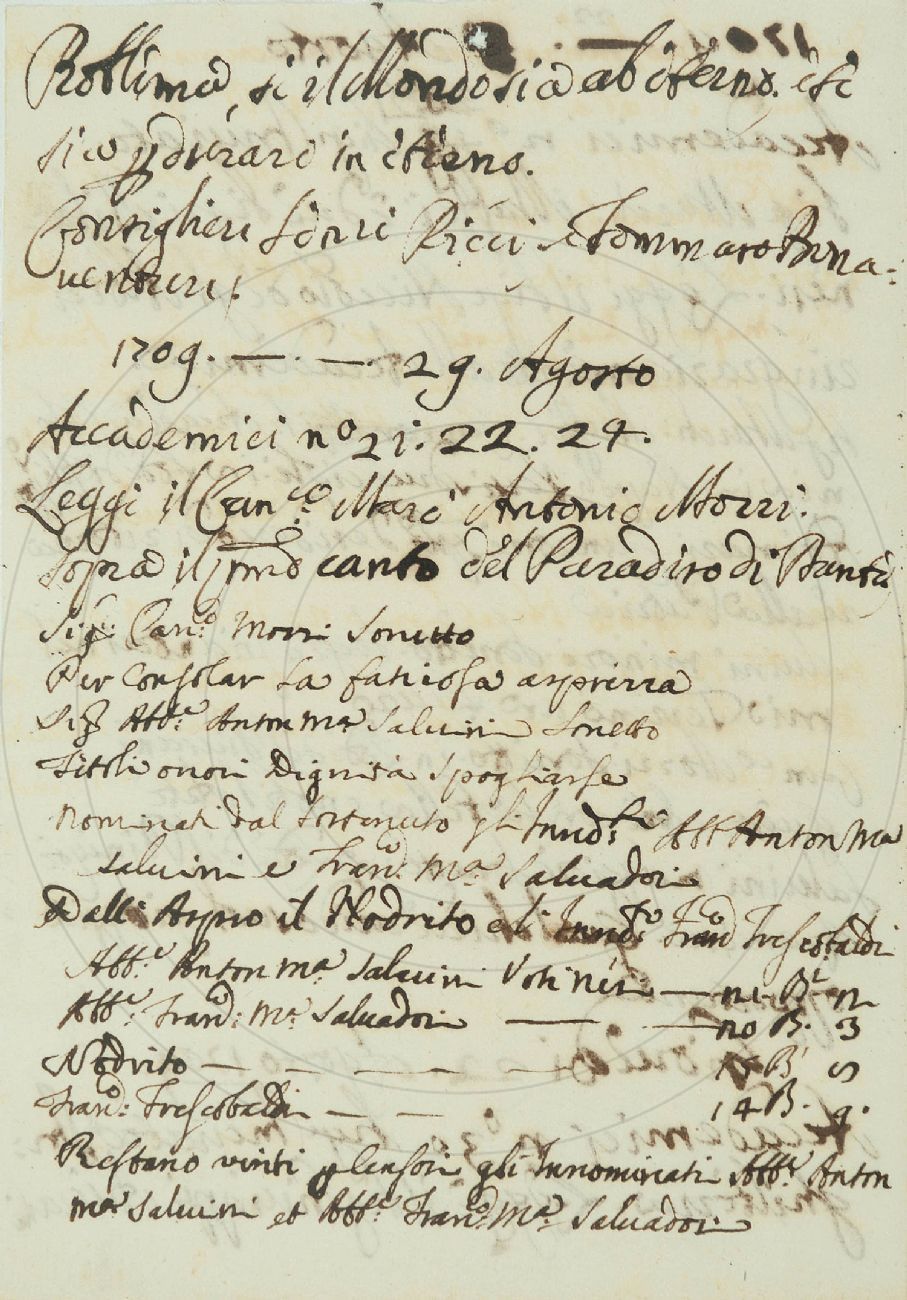 Problema, se il Mondo sia ab eterno. e se
sia p durare in eterno.
Consiglieri Sig.ri Ricci e Tommaso Bona:
venturi:
1709. — . — . 29. Agosto
Accademici no 21: 22. 24.
Leggi il Can.co Marc Antonio Mozzi.
sopra il pmo canto del Paradiso di Dante
Sig: Can.co Mozzi Sonetto
Per consolar la faticosa asprezza
Sig Abb.e Anton Ma Salvini Sonetto
Titoli onori Dignità spogliarse
Nominati dal Sostenuto gl'Innd.ti Abb Anton Ma
Salvini e Franc: Ma Salvadori
Dall: Aspro il Nodrito e l'Innd: Franc Frescobaldi
Abb.e Anton Ma Salvini Voti neri — B.
Abb.e Franc: Ma Salvadori — — 20 B. 3
Nodrito — — — — — B
Franc: Frescobaldi — — 14 B. 9.
Restano vinti p Censori gli Innominati Abb.e Anton
Ma Salvini et Abb.e Franc: Ma Salvadori